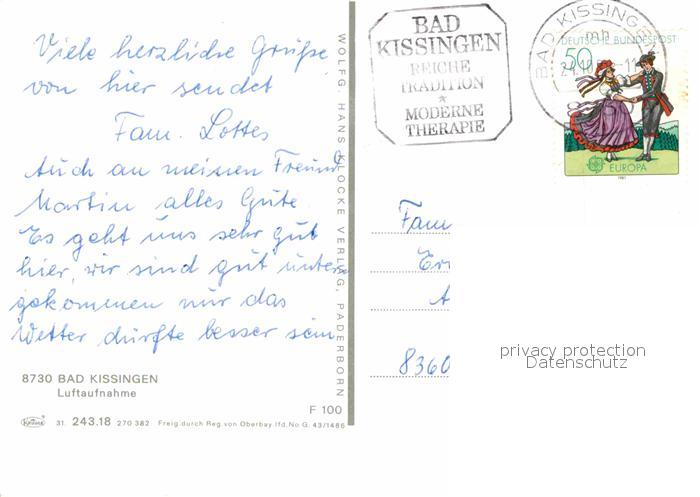 Viele herzliche Grüße
von hier sendet
Fam. Lottes
Auch an meinen Freund
Martin alles Gute.
Es geht uns sehr gut
hier, wir sind gut unter
gekommen nur das
Wetter dürfte besser sein
8730 BAD KISSINGEN
Luftaufnahme
Krüger 31. 243.18 270 382 Freig. durch Reg. von Oberbay. lfd. No G. 43/1486
F 100
WOLFG. HANS KLOCKE VERLAG, PADERBORN
BAD
KISSINGEN
REICHE
TRADITION
*
MODERNE
THERAPIE
BAD KISSING
mh
24.10.
DEUTSCHE BUNDESPOST
50
EUROPA
1981
Fam
Er
A
8360
privacy protection
Datenschutz